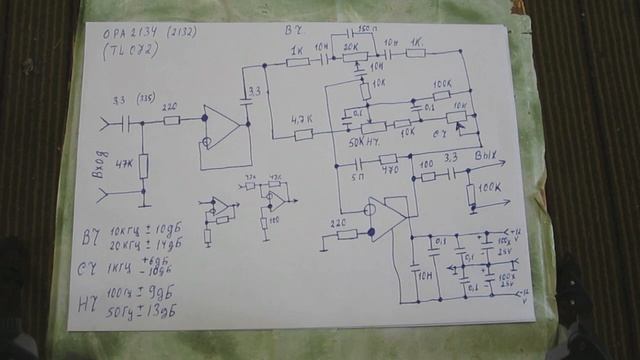 OPA2134 (2132)
(TL072)
ВЧ
150п
1К
10Н
20К
10Н
1К.
10Н
3,3
10К
100К
3,3 (335)
220
0,1
0,1
10К
4,7К
50К НЧ.
10К
СЧ
Вход
47К
5П
470
100
3,3
Вых
100К
47К
100
220
ВЧ 10КГЦ ± 10дБ
20КГЦ ± 14дБ
СЧ 1КГЦ +6дБ
-10дБ
НЧ 100Гц ± 9дБ
50Гц ± 13дБ
10Н
0,1
0,1
+
100x
25V
+12
V
0,1
+
100x
25V
-12
V